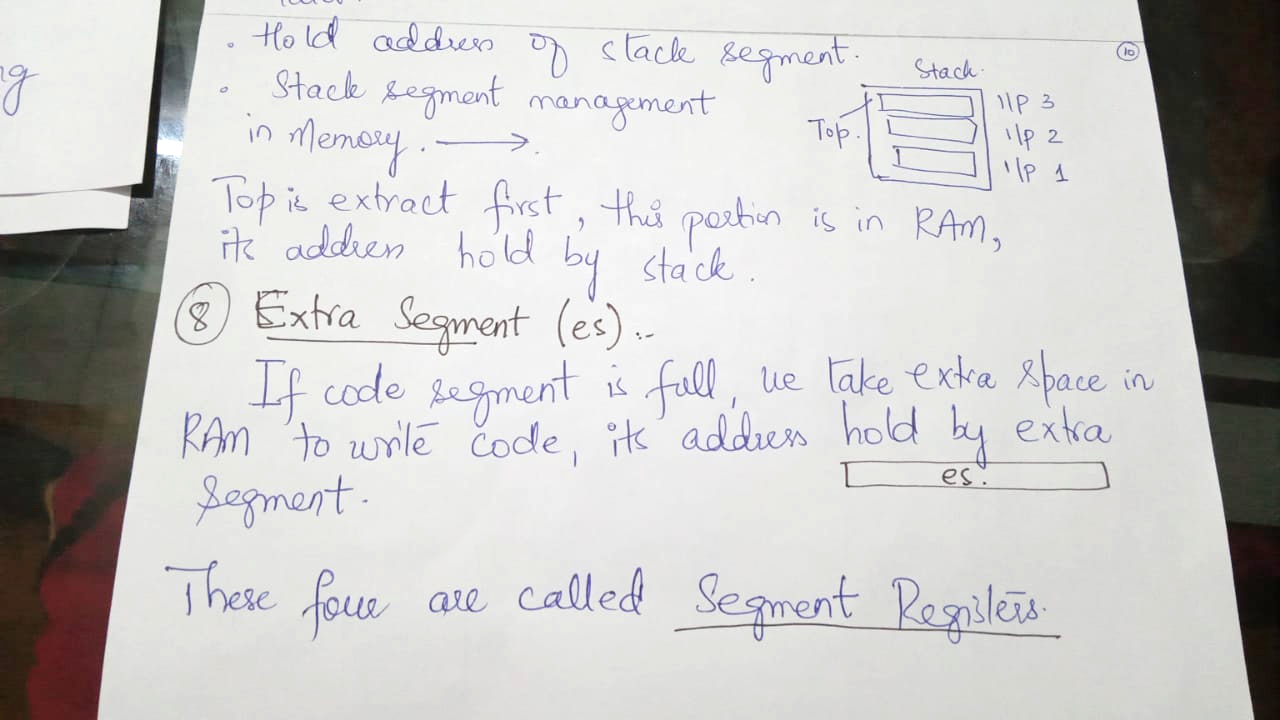 • Hold address of stack segment.
10
• Stack segment management
in Memory. ⟶.
Stack.
Top.
I/P 3
I/P 2
I/P 1
Top is extract first, this portion is in RAM,
its address hold by stack.
8 Extra Segment (es) :-
If code segment is full, we take extra space in
RAM to write code, its address hold by extra
es.
Segment.
These four are called Segment Registers.